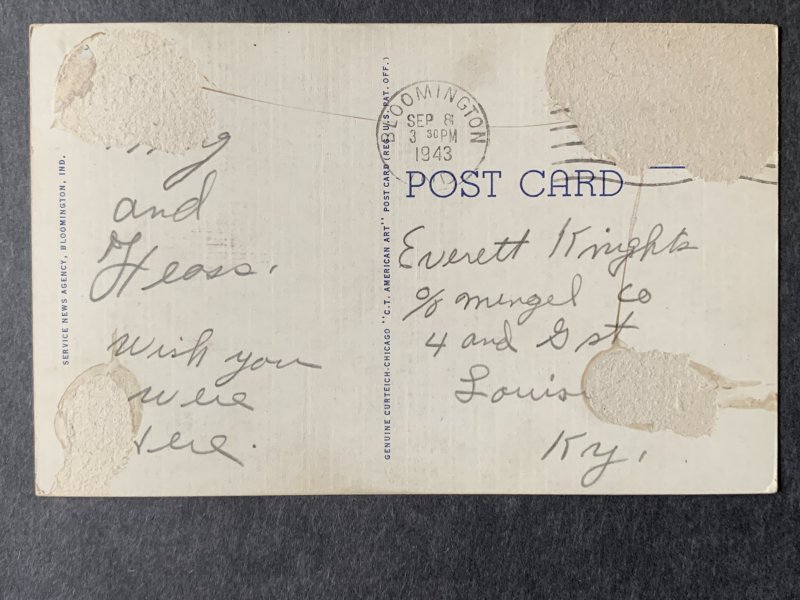 and
Hoass.
Wish you
were
ere.
SERVICE NEWS AGENCY, BLOOMINGTON, IND.
GENUINE CURTEICH-CHICAGO "C.T. AMERICAN ART" POST CARD (REG. U.S. PAT. OFF.)
BLOOMINGTON
SEP 8
3 30 PM
1943
POST CARD
Everett Knights
c/o Mengel Co
4 and G st
Louis
Ky.